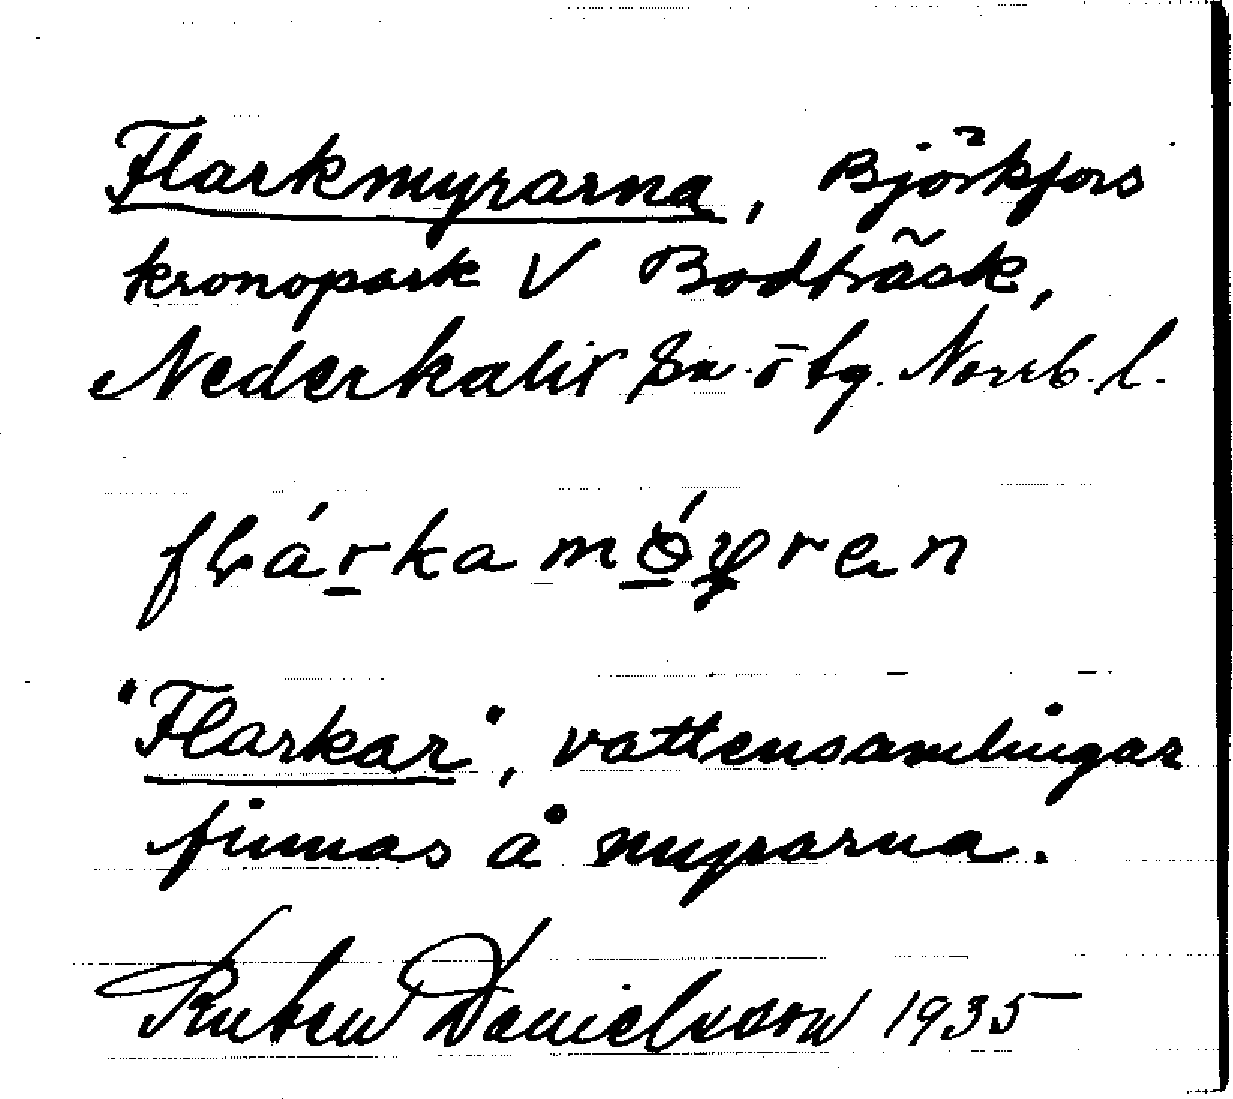 Flarkmyrarna, Björkfors
kronopark V Bodträsk,
Nederkalix sn. ö tg. Norrb. l.
"Flarkar", vattensamlingar
finnas å myrarna.
Ruben Danielsson 1935